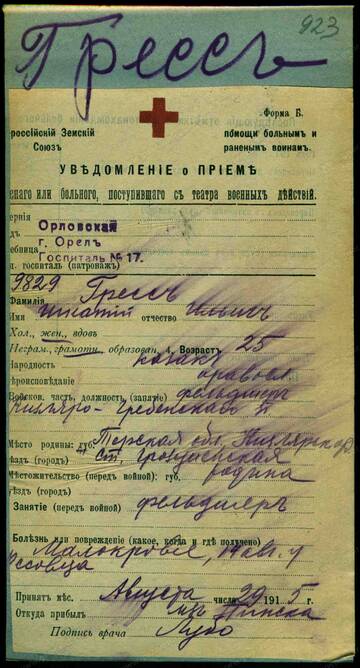 923
Грессъ
Форма Б.
российскій Земскій
Союзъ
помощи больнымъ и
раненымъ воинамъ.
УВѢДОМЛЕНІЕ о ПРІЕМѢ
енаго или больного, поступившаго съ театра военныхъ дѣйствій.
ернія
Орловская
г. Орелъ
Госпиталь № 17.
госпиталь (патронажъ)
9829 Грессъ
Фамилія
Имя Игнатій отчество Ильичъ
Хол., жен., вдовъ
Неграм., грамотн., образован. Возрастъ 25
Народность казакъ
Вѣроисповѣданіе правосл
Войсков. часть, должность (занятіе) фельдшеръ
Кизляро-Гребенского п
Мѣсто родины: губ. Терская обл. Кизлярск
ѣздъ (городъ) ст. Грозненская
Мѣстожительство (передъ войной): губ. родина
ѣздъ (городъ)
Занятіе (передъ войной) фельдшеръ
Болѣзнь или поврежденіе (какое, когда и гдѣ получено)
Малокровіе, 19 авг.
Принятъ мѣс. Августа числа 29 1915 г.
Откуда прибылъ изъ Пинска
Подпись врача